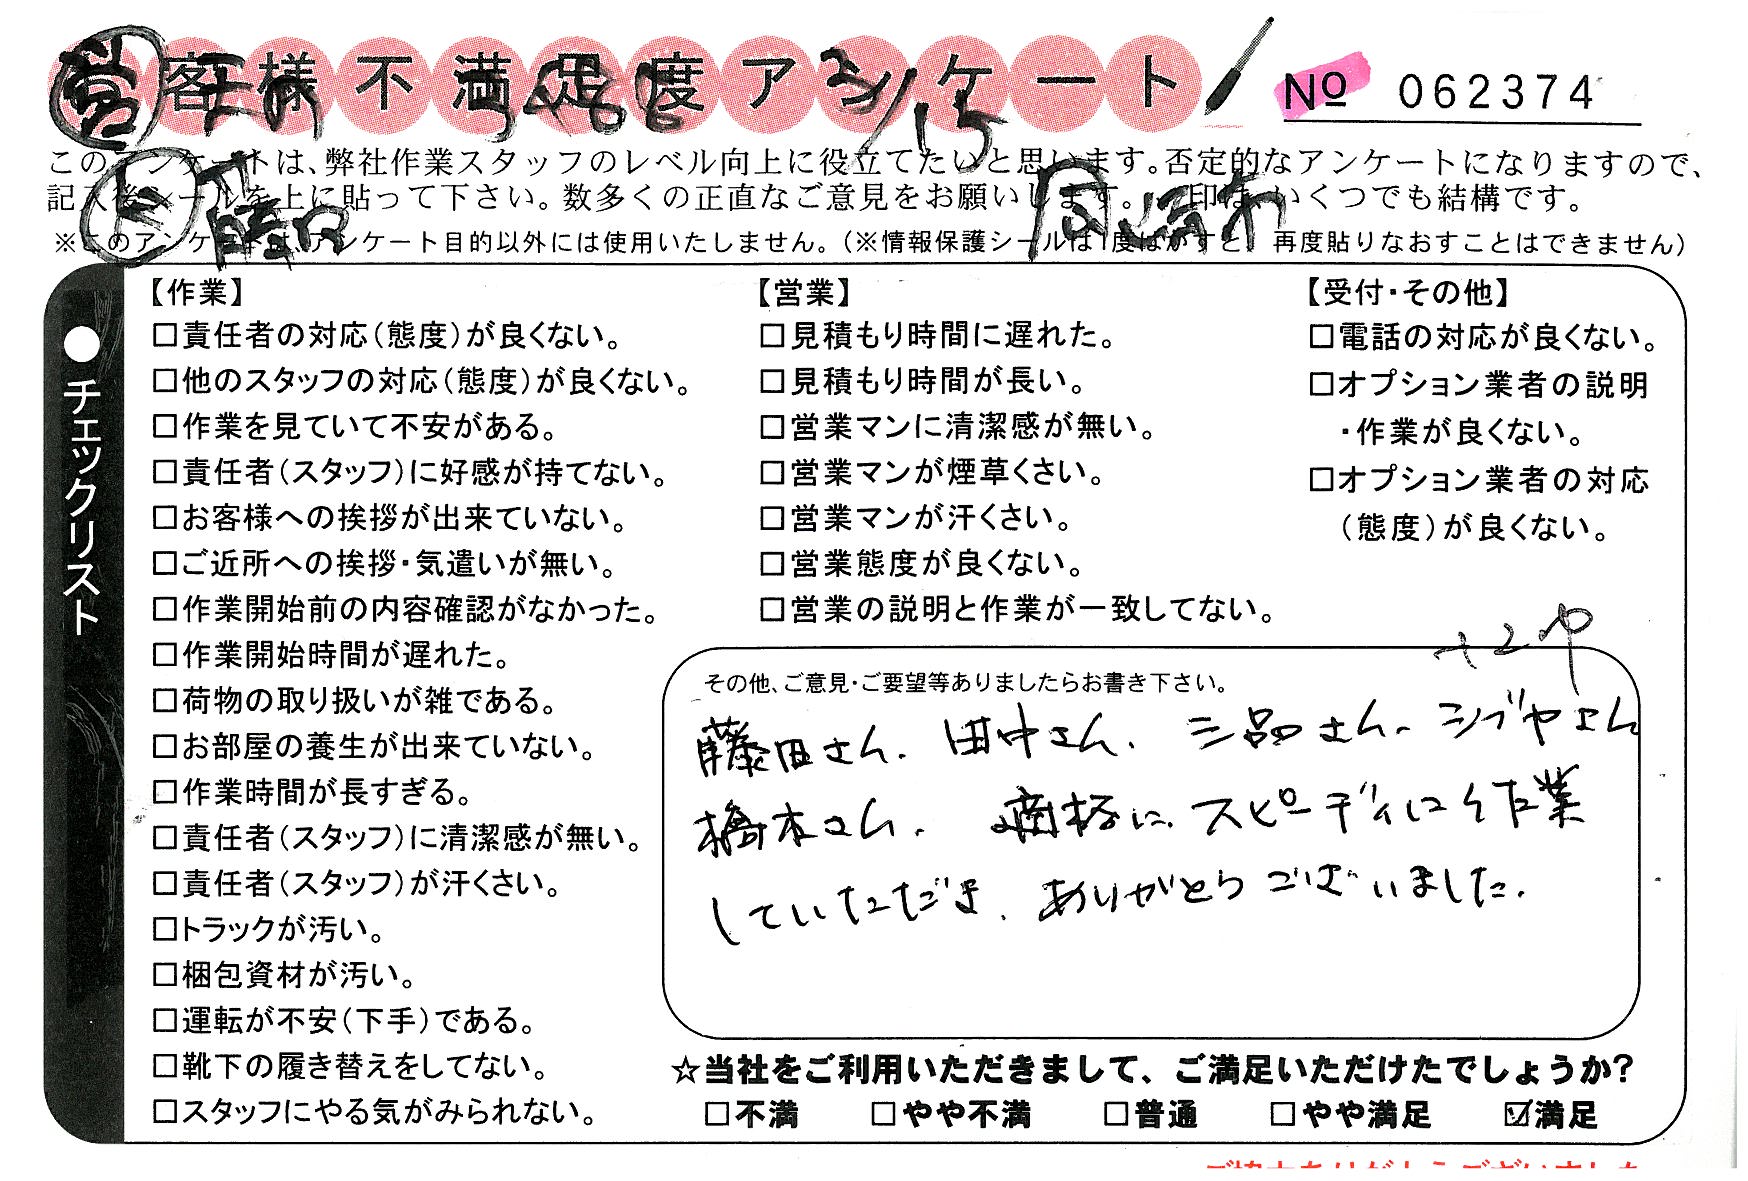 お客様不満足度アンケート
№ 062374
営
3/15
このアンケートは、弊社作業スタッフのレベル向上に役立てたいと思います。否定的なアンケートになりますので、
記入後シールを上に貼って下さい。数多くの正直なご意見をお願いします。 印は、いくつでも結構です。
岡崎市
※このアンケートは、アンケート目的以外には使用いたしません。(※情報保護シールは1度はがすと、再度貼りなおすことはできません)
●チェックリスト
【作業】
□責任者の対応(態度)が良くない。
□他のスタッフの対応(態度)が良くない。
□作業を見ていて不安がある。
□責任者(スタッフ)に好感が持てない。
□お客様への挨拶が出来ていない。
□ご近所への挨拶・気遣いが無い。
□作業開始前の内容確認がなかった。
□作業開始時間が遅れた。
□荷物の取り扱いが雑である。
□お部屋の養生が出来ていない。
□作業時間が長すぎる。
□責任者(スタッフ)に清潔感が無い。
□責任者(スタッフ)が汗くさい。
□トラックが汚い。
□梱包資材が汚い。
□運転が不安(下手)である。
□靴下の履き替えをしてない。
□スタッフにやる気がみられない。
【営業】
□見積もり時間に遅れた。
□見積もり時間が長い。
□営業マンに清潔感が無い。
□営業マンが煙草くさい。
□営業マンが汗くさい。
□営業態度が良くない。
□営業の説明と作業が一致してない。
【受付・その他】
□電話の対応が良くない。
□オプション業者の説明
・作業が良くない。
□オプション業者の対応
(態度)が良くない。
その他、ご意見・ご要望等ありましたらお書き下さい。
藤田さん、田中さん、三品さん、シブヤさん
橋本さん、 スピーディに作業
していただき、ありがとうございました。
☆当社をご利用いただきまして、ご満足いただけたでしょうか?
□不満 □やや不満 □普通 □やや満足 ☑満足
ご協力ありがとうございました